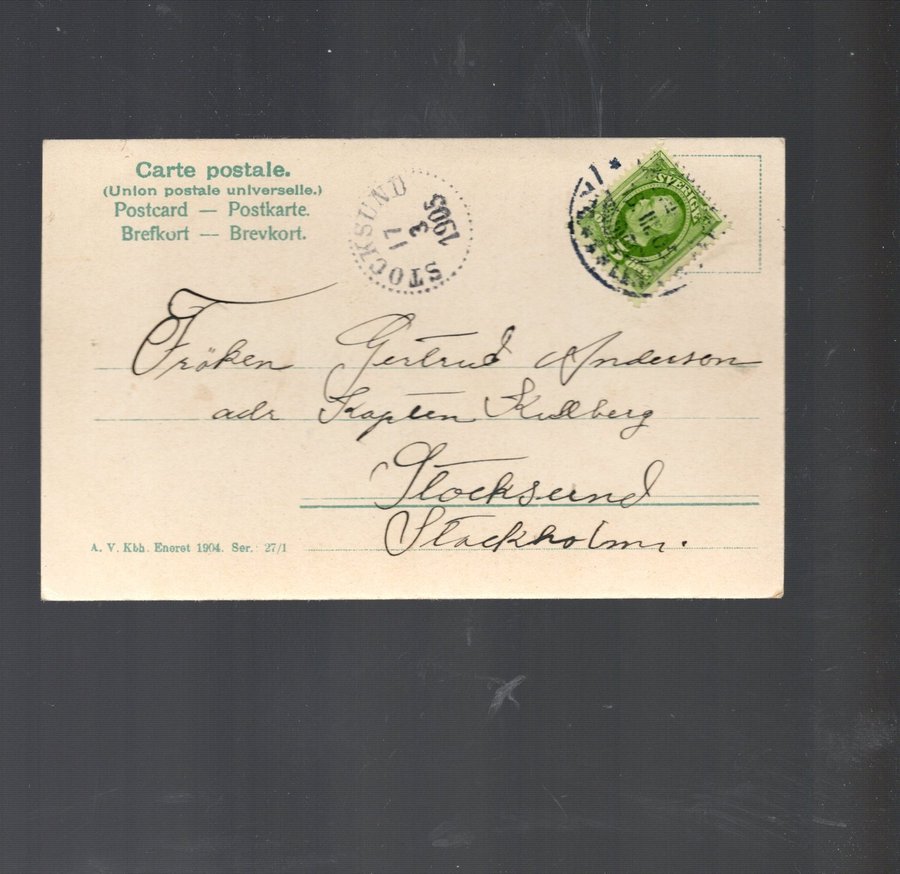 Carte postale.
(Union postale universelle.)
Postcard — Postkarte.
Brefkort — Brevkort.
STOCKSUND
17
3
1905
SVERIGE
5
Fröken Gertrud Anderson
adr Kapten Kullberg
Stocksund
Stockholm.
A. V. Kbh. Eneret 1904. Ser. 27/1